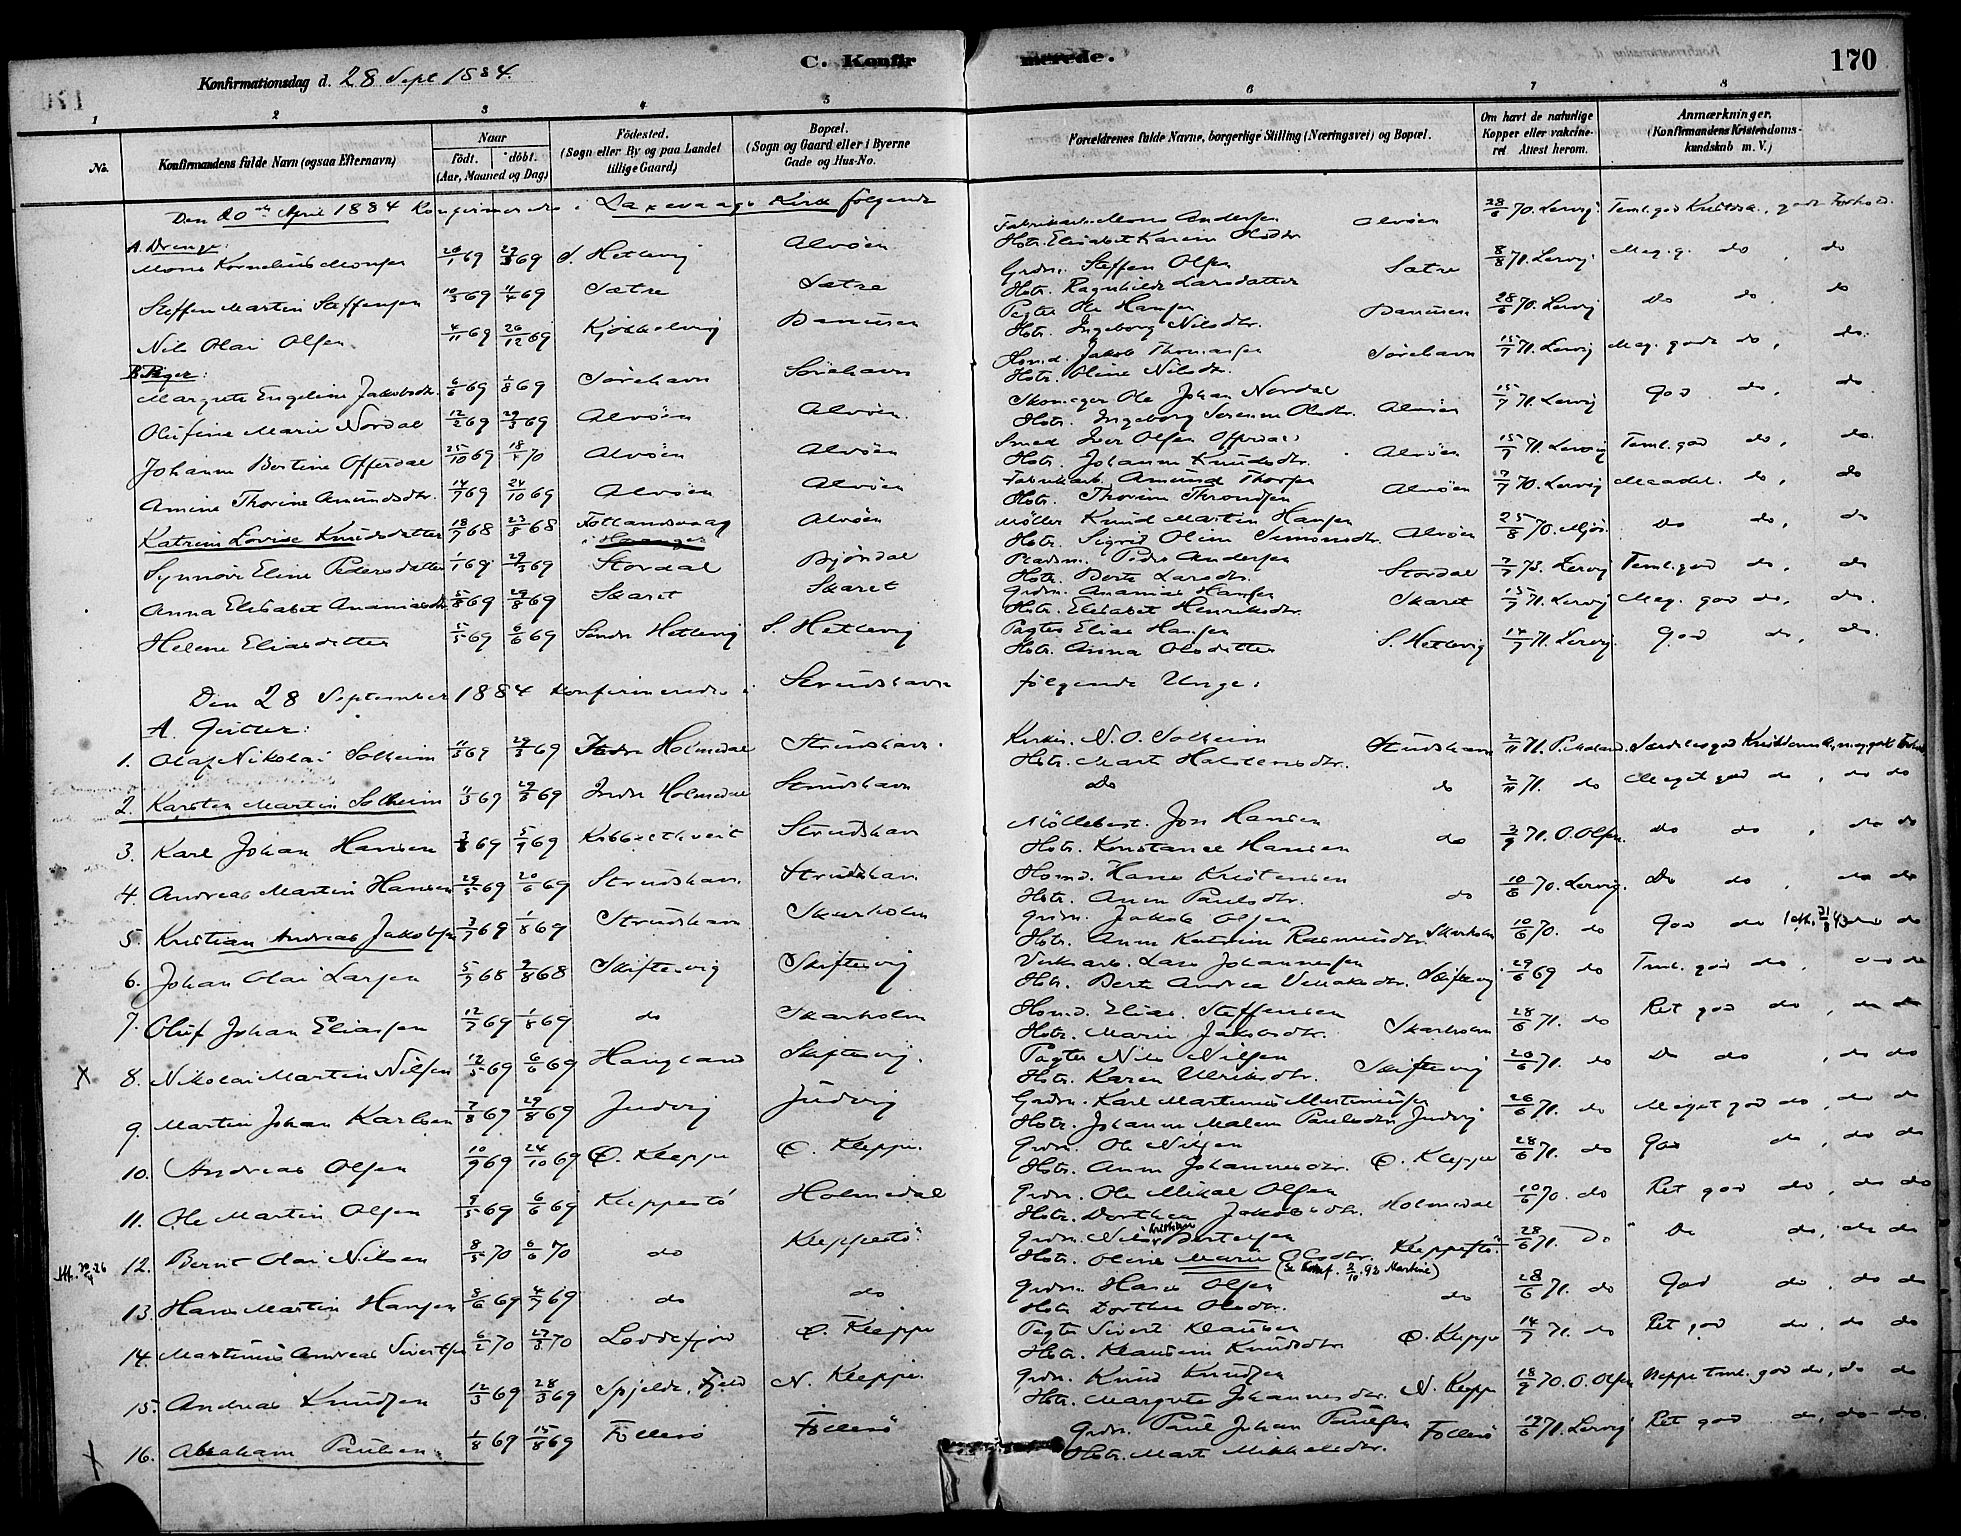 C. Konfirmerede.
170
Konfirmationsdag d. 28 Sept 1884.
1 2 3 4 5 6 7 8
No.
Konfirmandens fulde Navn (ogsaa Efternavn)
Naar født. døbt. (Aar, Maaned og Dag)
Fødested. (Sogn eller By og paa Landet tillige Gaard)
Bopæl. (Sogn og Gaard eller i Byerne Gade og Hus-No.
Forældrenes fulde Navne, borgerlige Stilling (Næringsvei) og Bopæl.
Om havt de naturlige Kopper eller vaccineret Attest herom.
Anmærkninger. (Konfirmandens Kristendomskundskab m. V.)
Den 20de April 1884 Konfirmeredes i Laxevaags Kirke følgende
A. Drenge:
Mons Kornelius Monsen 69 69 S. Hetlevig Alvøen Mons Andersen Hstr. Elisabet Karine Alvøen 28/6 70. Lervig
Steffen Martin Steffensen 10/3 69 11/4 69 Sætre Sætre Grdm. Steffen Olsen Hstr. Ragnhilde Larsdatter Sætre 8/8 71. Lervig Meg. g. do do
Nils Olai Olsen 4/11 69 26/12 69 Danusen Pagter Ole Hansen Hstr. Ingeborg Nilsdtr. Danusen 28/6 70. Lervig do do do
B. Piger:
Margrete Engeline Jakobsdtr. 6/6 69 1/8 69 Sørehavn Sørehavn Jakob Thomassen Hstr. Oline Nilsdtr. Sørehavn 15/7 71. Lervig Meg. godt do, do.
Olufine Marie Nordal 12/2 69 29/3 69 Alvøen Alvøen Skomager Ole Johan Nordal Hstr. Ingeborg Olsdtr. Alvøen 15/7 71. Lervig God do, do
Johanne Bertine Offerdal 25/10 69 18/4 70 Alvøen Alvøen Smed Iver Olsen Offerdal Hstr. Johanne Knudsdtr. Alvøen 15/7 71. Lervig Teml. god do, do.
Amine Thorine Amundsdtr. 14/7 69 24/10 69 Alvøen Alvøen Fabrikarb. Amund Thorsen Hstr. Thorine Throndsen Alvøen 7/7 70. Lervig Maadel. do, do
Katrine Lovise Knudsdatter 18/7 68 23/8 68 Alvøen Møller Knud Martin Hansen Hstr. Sigrid Oline Simonsdtr. Alvøen 25/8 70. Do do, do
Synnøve Eline Pedersdatter 1/1 69 29/3 69 Stordal Bjøndal Peder Andersen Hstr. Berte Larsdtr. Stordal 7/7 73. Lervig Teml. god do, do
Anna Elisabet Ananiasdtr 5/8 69 29/8 69 Skaret Skaret Grdm. Ananias Hansen Hstr. Elisabet Henriksdtr. Skaret 15/7 71. Lervig Meg. god do, do.
Helene Eliasdatter 5/5 69 6/6 69 Søndre Hetlevig S. Hetlevig Pagter Elias Hansen Hstr. Anna Olsdatter S. Hetlevig 14/7 71. Lervig. God do, do.
Den 28 September 1884 konfirmeredes i Strudshavn følgende Unge:
A. Gutter:
1. Olaf Nikolai Solheim 11/3 69 29/3 69 Indre Holmedal Strudshavn. Kirkes. N. O. Solheim Hstr. Marte Halstensdtr. Strudshavn 2/11 71.
2. Karsten Martin Solheim 11/3 69 29/3 69 Indre Holmedal Strudshavn Do do 2/11 71. do Meget god do, do do
3. Karl Johan Hansen 69 5/9 69 Strudshavn Møllebest. Jon Hansen Hstr. Konstance Hansen do 71. O. Olsen. do do, do do
4. Andreas Martin Hansen 29/5 69 20/6 69 Strudshavn Strudshavn Hans Kristensen Hstr. Anna Paulsdtr. do 10/6 70. Lervig. Do do do do
5 Kristian Andreas Jakobsen 7/7 69 1/8 69 Strudshavn Skarholm Grdm. Jakob Olsen Hstr. Anne Katrine Rasmusdtr. Skarholm 10/6 70. do God do do
6. Johan Olai Larsen 5/7 68 68 Skiftesvig Skiftesvig Lars Johannesen Hstr. Berte Andrea Skiftesvig 29/6 69 do Teml. god do,
7. Oluf Johan Eliassen 12/7 69 1/8 69 do Skarholm Elias Steffensen Hstr. Marie Jakobsdtr. Skarholm 28/6 71. do Ret god do, do do
X 8. Nikolai Martin Nilsen 12/5 69 6/6 69 Haugland Skiftesvig. Pagter Nils Nilsen Hstr. Karen Ulriksdtr. Skiftesvig 26/6 71. do Do do, do do
9. Martin Johan Karlsen 7/8 69 29/8 69 Judvig Judvig Grdm. Karl Martinus Martinusen Hstr. Johanne Malene Paulsdtr Judvig 26/6 71. do Meget god do, do do
10. Andreas Olsen 10/9 69 24/10 69 Ø. Kleppe Ø. Kleppe. Grdm. Ole Nilsen Hstr. Anne Johannesdtr. Ø. Kleppe 28/6 71. do God do, do do
11. Ole Martin Olsen 69 6/6 69 Kleppestø Holmedal Grdm. Ole Mikal Olsen Hstr. Dorthea Jakobsdtr. Holmedal 10/6 70. do Ret god do, do do
Att. 20/4 26 12. Bernt Olai Nilsen 8/5 70 6/6 70 do Kleppestø Grdm. Nils Kristian Bertelsen Hstr. Oline Marie Olsdtr. (Se konf. 2/10. 92 Martine) Kleppestø 28/6 71. Do Do do, do do
13. Hans Martin Hansen 3/6 69 4/7 69 do do Grdm. Hans Olsen Hstr Dorthea Olsdtr. do 28/6 71. do God do, do do
14. Martinus Andreas Sivertsen 6/2 70 27/3 70 Loddefjord Ø. Kleppe Pagter Sivert Klausen Hstr. Knudsdtr Ø. Kleppe 14/7 71. do Ret god do, do do
15. Andreas Knudsen 12/3 69 28/3 69 Spjeld, Fjeld N. Kleppe. Grdm. Knud Knudsen Hstr. Margrete Johannesdtr. N. Kleppe 18/9 70. O. Olsen Neppe teml. god do, do do
X 16. Abraham Paulsen. 1/8 69 15/8 69 Follesø Follesø Grdm. Paul Johan Paulsen Hstr. Marte Mikkelsdtr. Follesø 71. Lervig Ret god do, do do.